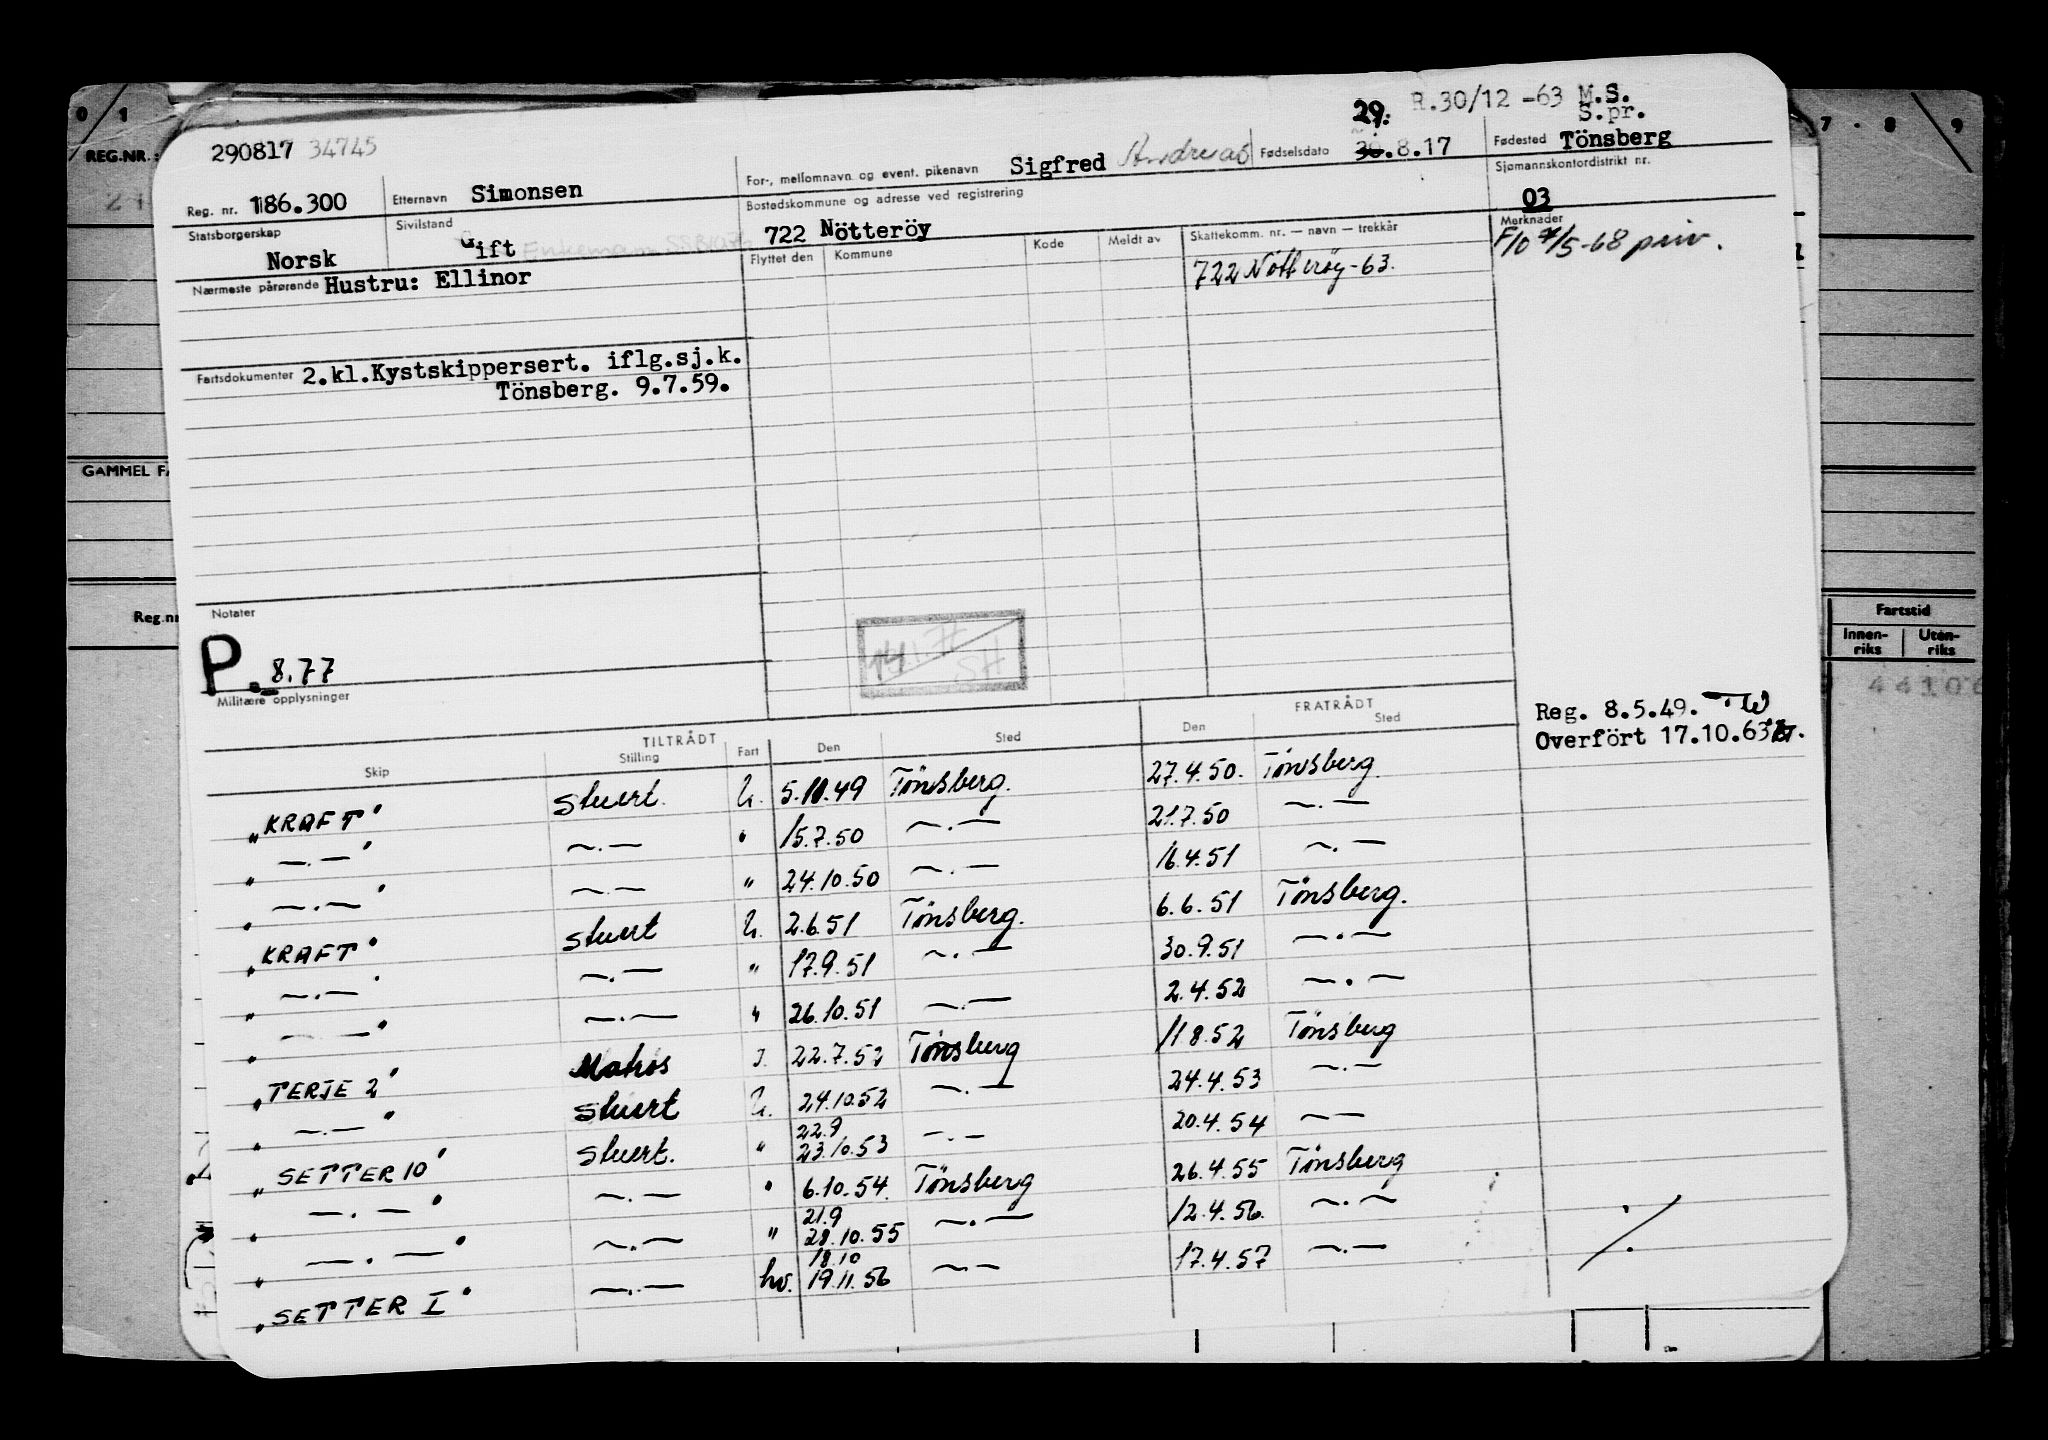 29. R.30/12 -63 M.S.
S.pr.
290817 34745
Reg. nr. 186.300 Etternavn Simonsen For-, mellomnavn og event. pikenavn Sigfred Andreas Fødselsdato 30.8.17 Fødested Tönsberg
Statsborgerskap Norsk Sivilstand Gift Enkemann Bostedskommune og adresse ved registrering 722 Nötteröy Sjømannskontordistrikt nr. 03
Nærmeste pårørende Hustru: Ellinor Flyttet den Kommune Kode Meldt av Skattekomm. nr. — navn — trekkår Merknader
722 Nötteröy-63. F/O /5-68 priv.
Fartsdokumenter 2.kl.Kystskippersert. iflg.sj.k.
Tönsberg. 9.7.59.
Notater
P. 8.77
SH
Militære opplysninger
Reg. 8.5.49.
Overfört 17.10.63
TILTRÅDT FRATRÅDT
Skip Stilling Fart Den Sted Den Sted
"KRAFT" stuert. U. 5.10.49 Tönsberg. 27.4.50. Tönsberg.
" —.— " —.— " 15.7.50 —.— 21.7.50 —.—
" —.— " —.— " 24.10.50 —.— 16.4.51 —.—
"KRAFT" stuert U. 2.6.51 Tönsberg. 6.6.51 Tönsberg.
" —.— " —.— " 17.9.51 —.— 30.9.51 —.—
" —.— " —.— " 26.10.51 —.— 2.4.52 —.—
"TERJE 2" Matros I. 22.7.52 Tönsberg 11.8.52 Tönsberg
" —.— " stuert U. 24.10.52 —.— 24.4.53 —.—
"SETTER 10" stuert. " 22.9 23.10.53 —.— 20.4.54 —.—
" —.— " —.— " 6.10.54. Tönsberg 26.4.55 Tönsberg
" —.— " —.— " 21.9 28.10.55 —.— 12.4.56. —.—
"SETTER I" —.— hv. 18.10 19.11.56 —.— 17.4.57 —.—
REG.NR.:
GAMMEL
Reg.nr
0 1
7 8 9
Fartstid
Innen-riks Uten-riks